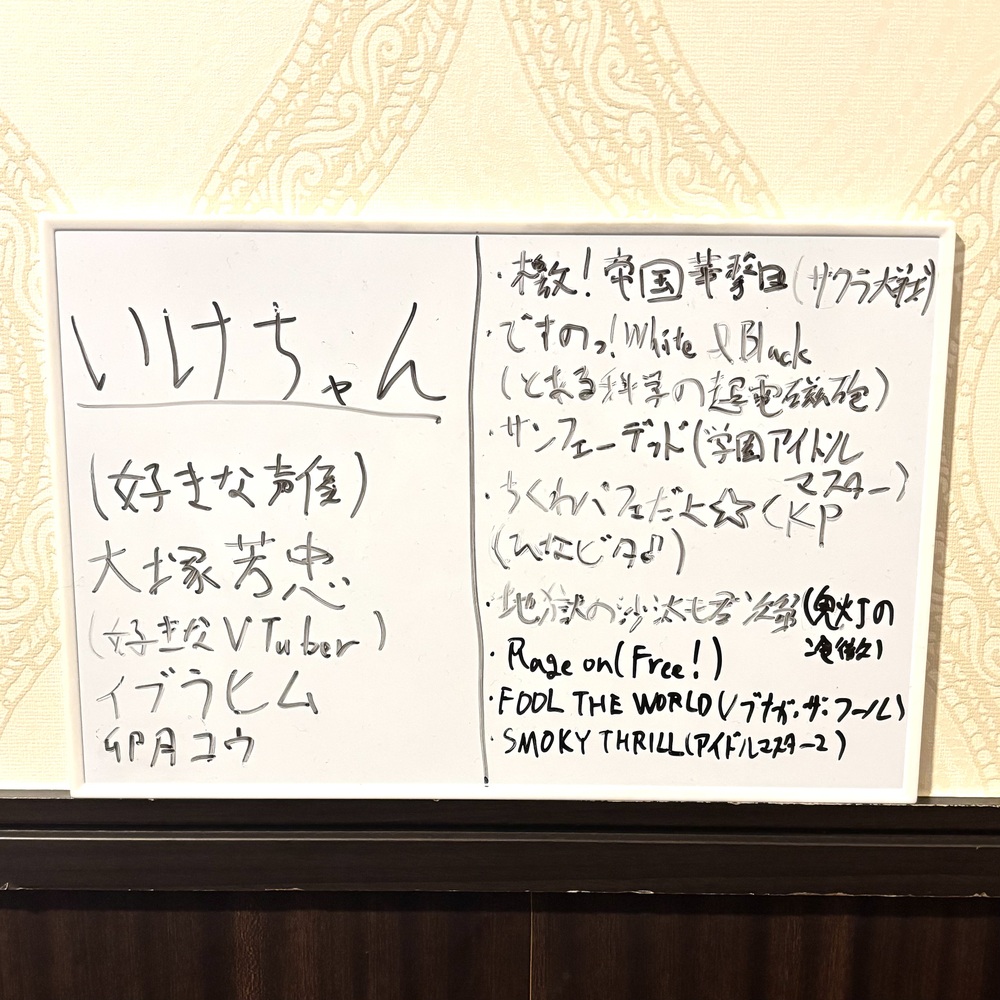 いけちゃん
(好きな声優)
大塚芳忠
(好きなVTuber)
イブラヒム
卯月コウ
・檄!帝国華撃団(サクラ大戦)
・ですのっ!White & Black
(とある科学の超電磁砲)
・サンフェーデッド(学園アイドル
マスター)
・ちくわパフェだよ☆CKP
(ひなビタ♪)
・地獄の沙汰も君次第(鬼灯の
冷徹)
・Rage on(Free!)
・FOOL THE WORLD(ノブナガ・ザ・フール)
・SMOKY THRILL(アイドルマスター2)